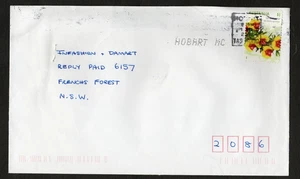 HOBART MC
INFASHION - DAMART
REPLY PAID 6157
FRENCHS FOREST
N.S.W.
2086